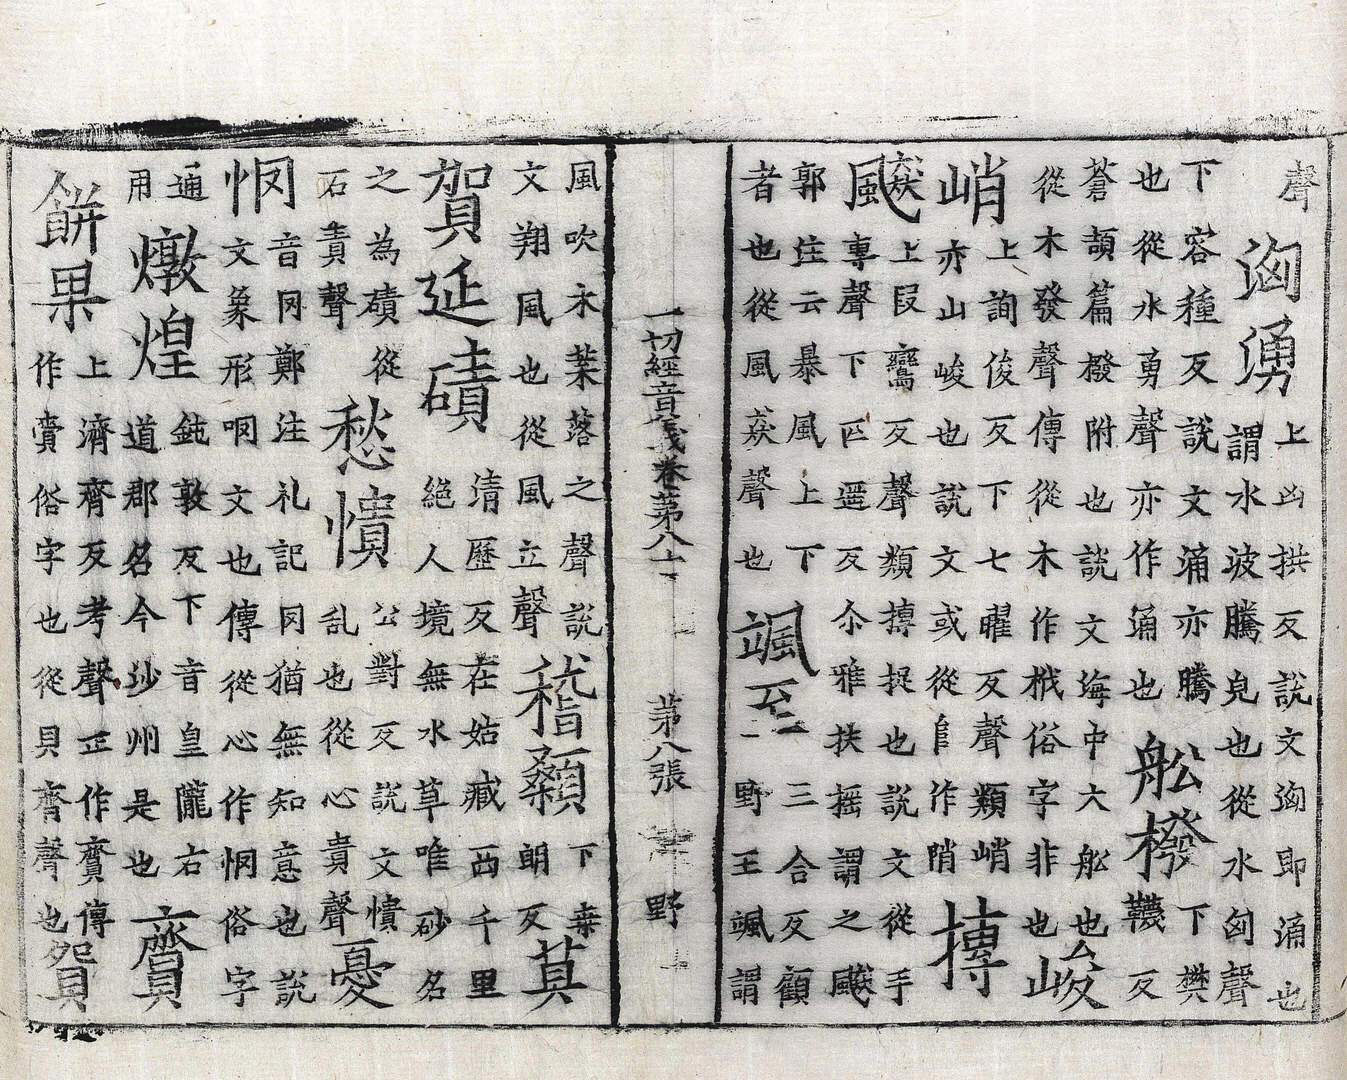 聲
洶湧
上凶拱反說文洶即涌也
謂水波騰皃也從水匈聲
下容種反說文涌亦騰
也從水勇聲亦作涌也
舩橃
下樊
韈反
蒼頡篇橃附也說文海中大舩也
從木發聲傳從木作栰俗字非也
峻
峭
上詢俊反下七曜反聲類峭
亦山峻也說文或從𨸏作陗
摶
飈
上段鸞反聲類摶捉也說文從手
專聲下匹遥反尒雅扶摇謂之飈
郭注云暴風上下
者也從風猋聲也
颯至
三合反顧
野王颯謂
一切經音義卷第八十 第八張 野
風吹木葉落之聲說
文翔風也從風立聲
稽顙
下桒
朗反
莫
賀延磧
清歷反在姑臧西千里
絕人境無水草唯砂名
之為磧從
石責聲
愁憒
公對反說文憒
乱也從心貴聲
憂
惘
音罔鄭注礼記罔猶無知意也說
文象形㒺文也傳從心作惘俗字
通
用
燉煌
鈍敦反下音皇隴右
道郡名今沙州是也
齎
餅果
上濟齊反考聲正作齎傳
作賷俗字也從貝齊聲也
貿